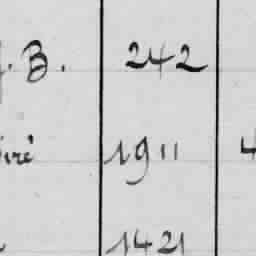 J. B. 242
iré 1911 4
1421